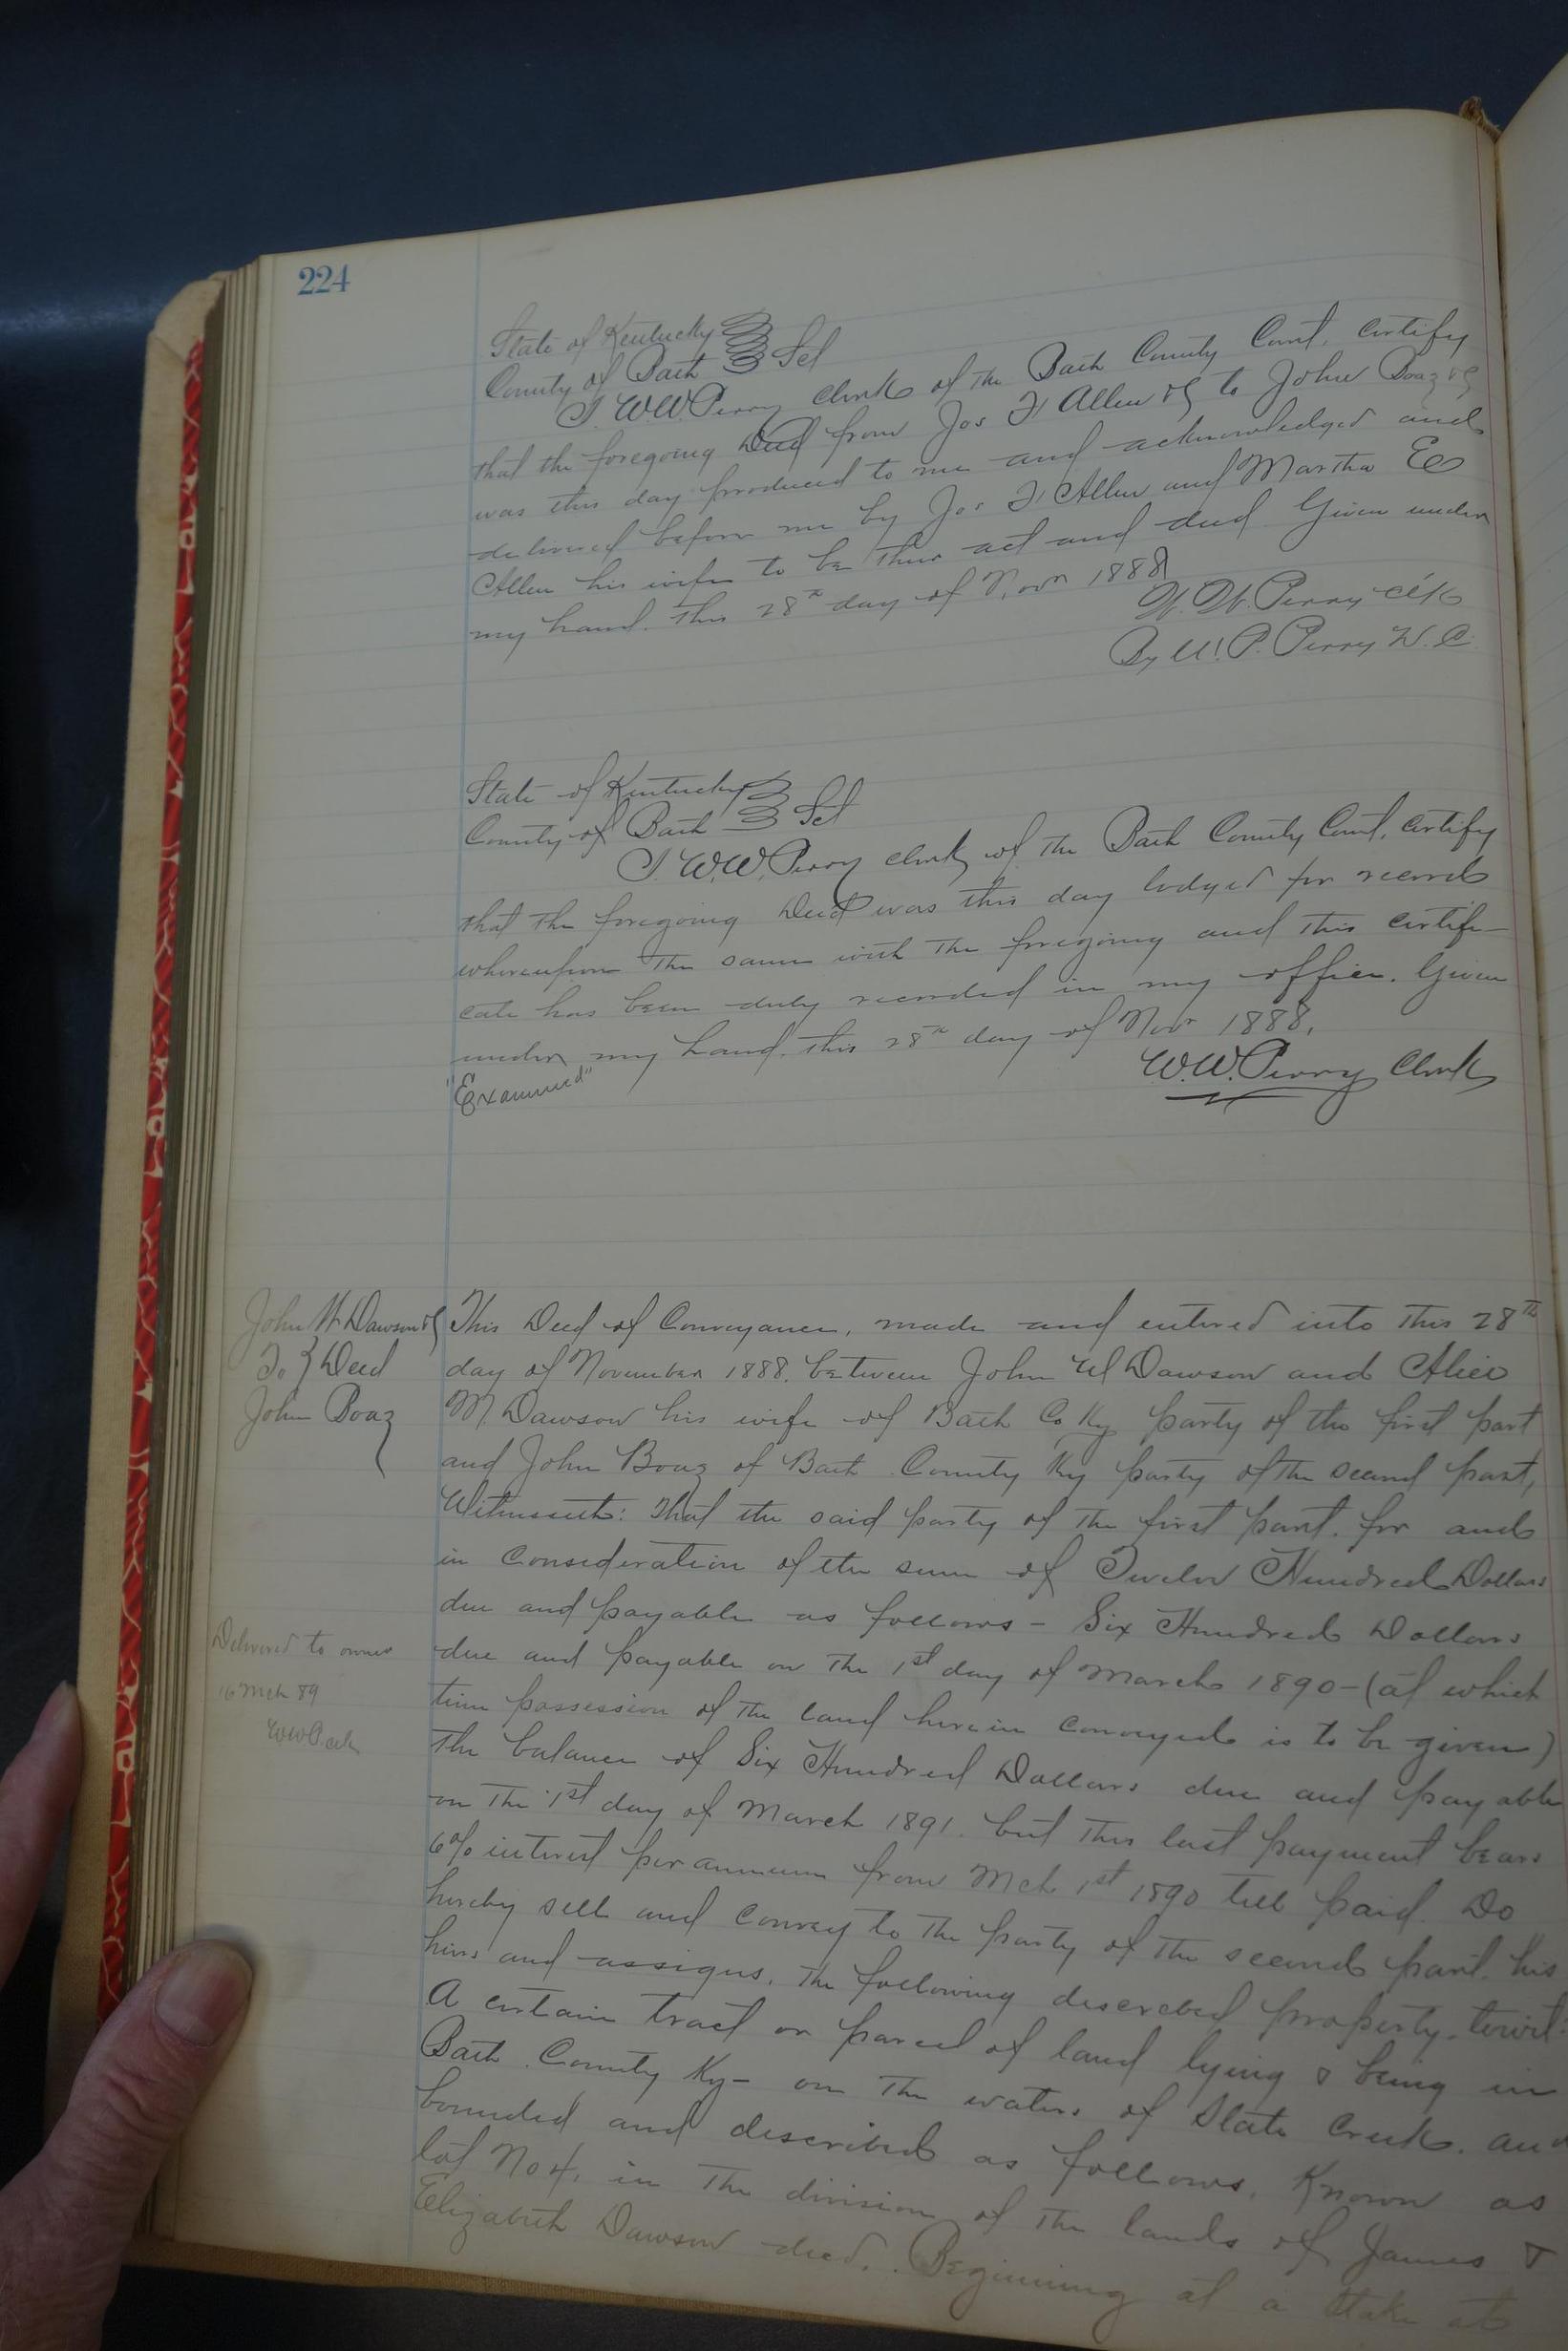 224
State of Kentucky
County of Bath Sct
I. W.W. Perry Clerk of the Bath County Court, certify
that the foregoing Deed from Jos F. Allen &c to John Boaz &c
was this day produced to me and acknowledged and
delivered before me by Jos F. Allen and Martha E
Allen his wife to be their act and deed Given under
my hand. this 28th day of Novr 1888
W. W. Perry Clk
By W. P. Perry D.C.
State of Kentucky
County of Bath Sct
I. W.W. Perry clerk of the Bath County Court, certify
that the foregoing Deed was this day lodged for record
whereupon the same with the foregoing and this certifi-
cate has been duly recorded in my office. Given
under my hand. this 28th day of Novr 1888.
"Examined"
W.W. Perry Clerk
John W Dawson &c
To } Deed
John Boaz
This Deed of Conveyance, made and entered into this 28th
day of November 1888. between John W Dawson and Alice
M. Dawson his wife of Bath Co Ky party of the first part
and John Boaz of Bath County Ky party of the second part,
Witnesseth: That the said party of the first part. for and
in consideration of the sum of Twelve Hundred Dollars
due and payable as follows - Six Hundred Dollars
due and payable on the 1st day of March 1890 - (at which
time possession of the land herein conveyed is to be given)
The balance of Six Hundred Dollars due and payable
on the 1st day of March 1891. but this last payment bears
6% interest per annum from Mch 1st 1890 till paid. Do
hereby sell and convey to the party of the second part. his
heirs and assigns, the following described property. towit:
A certain tract or parcel of land lying & being in
Bath County Ky - on the waters of Slate Creek. and
bounded and described as follows. Known as
lot No 4, in the division of the lands of James &
Elizabeth Dawson decd. Beginning at a stake at
Delivered to owner
16 Mch 89
WWP clk